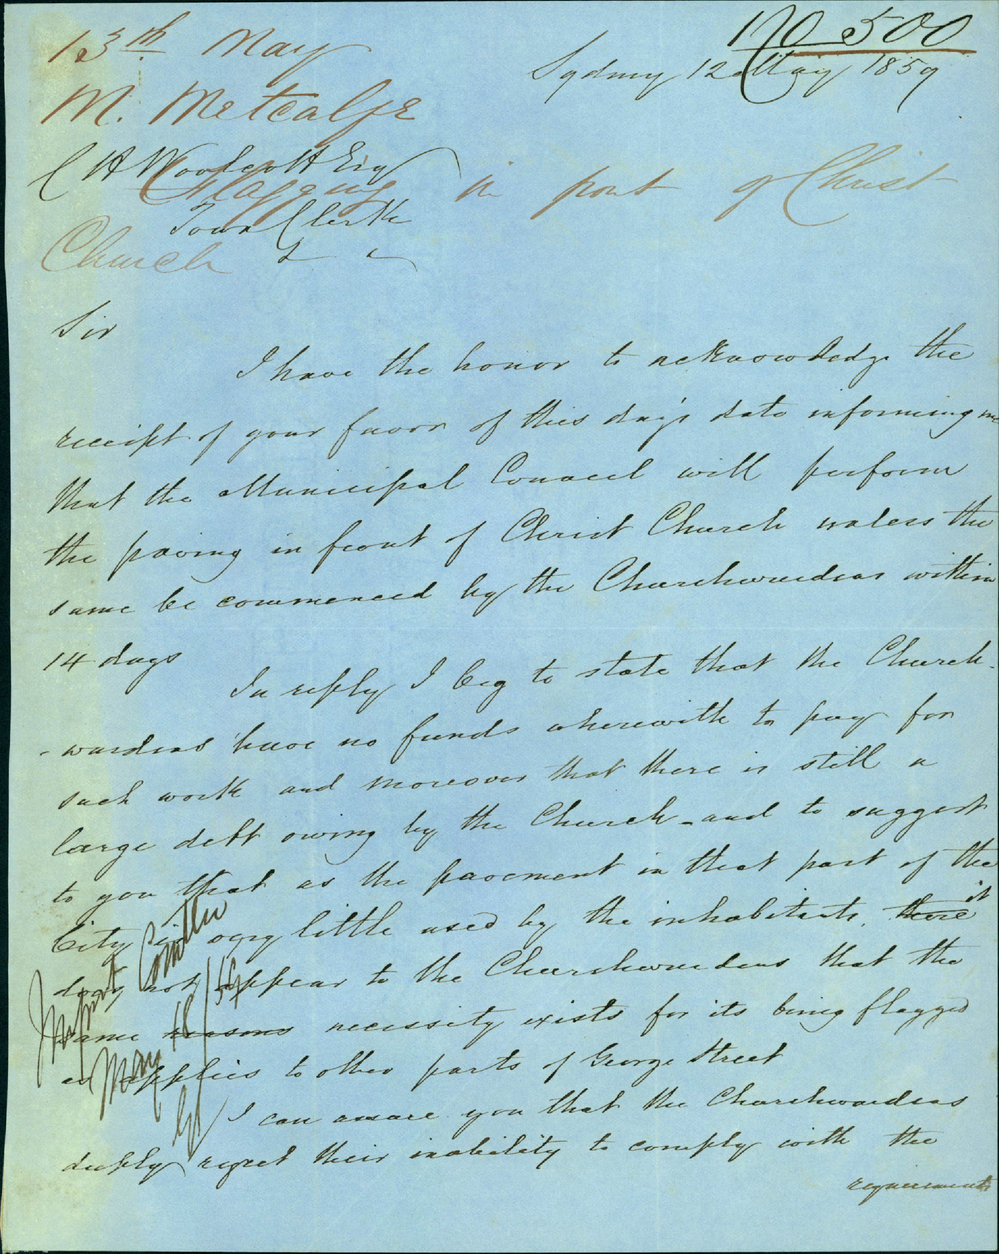 170 500
13th May
Sydney 12 May 1859
M. Metcalfe
C H Woolcott Esq
Flagging in front of Christ
Town Clerk
Church
Sir
I have the honor to acknowledge the
receipt of your favor of this day's date informing me
that the Municipal Council will perform
the paving in front of Christ Church unless the
same be commenced by the Churchwardens within
14 days
In reply I beg to state that the Church-
-wardens have no funds wherewith to pay for
such work and moreover that there is still a
large debt owing by the Church - and to suggest
to you that as the pavement in that part of the
City is very little used by the inhabitants, there it
does not appear to the Churchwardens that the
same reasons necessity exists for its being flagged
as applies to other parts of George Street
I can assure you that the Churchwardens
deeply regret their inability to comply with the
requirements
Improt Comttee
May 18/59